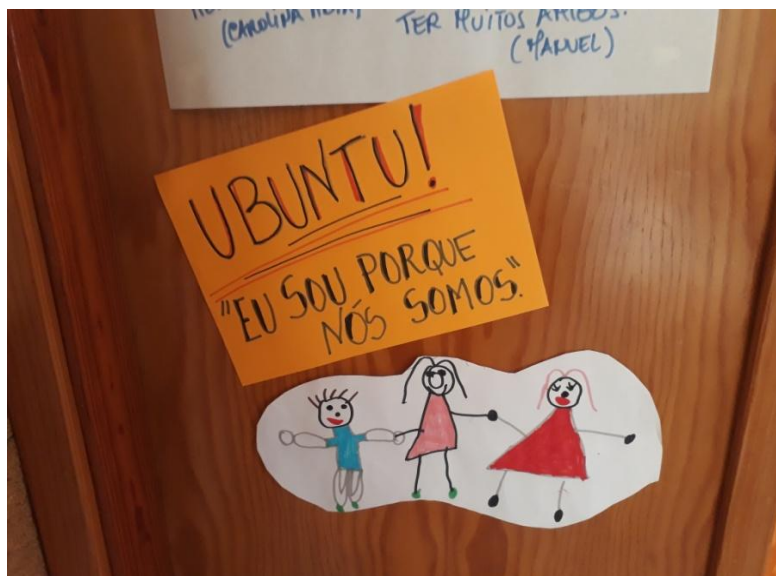 (CAROLINA
TER MUITOS AMIGOS.
(MANUEL)
UBUNTU!
"EU SOU PORQUE
NÓS SOMOS."